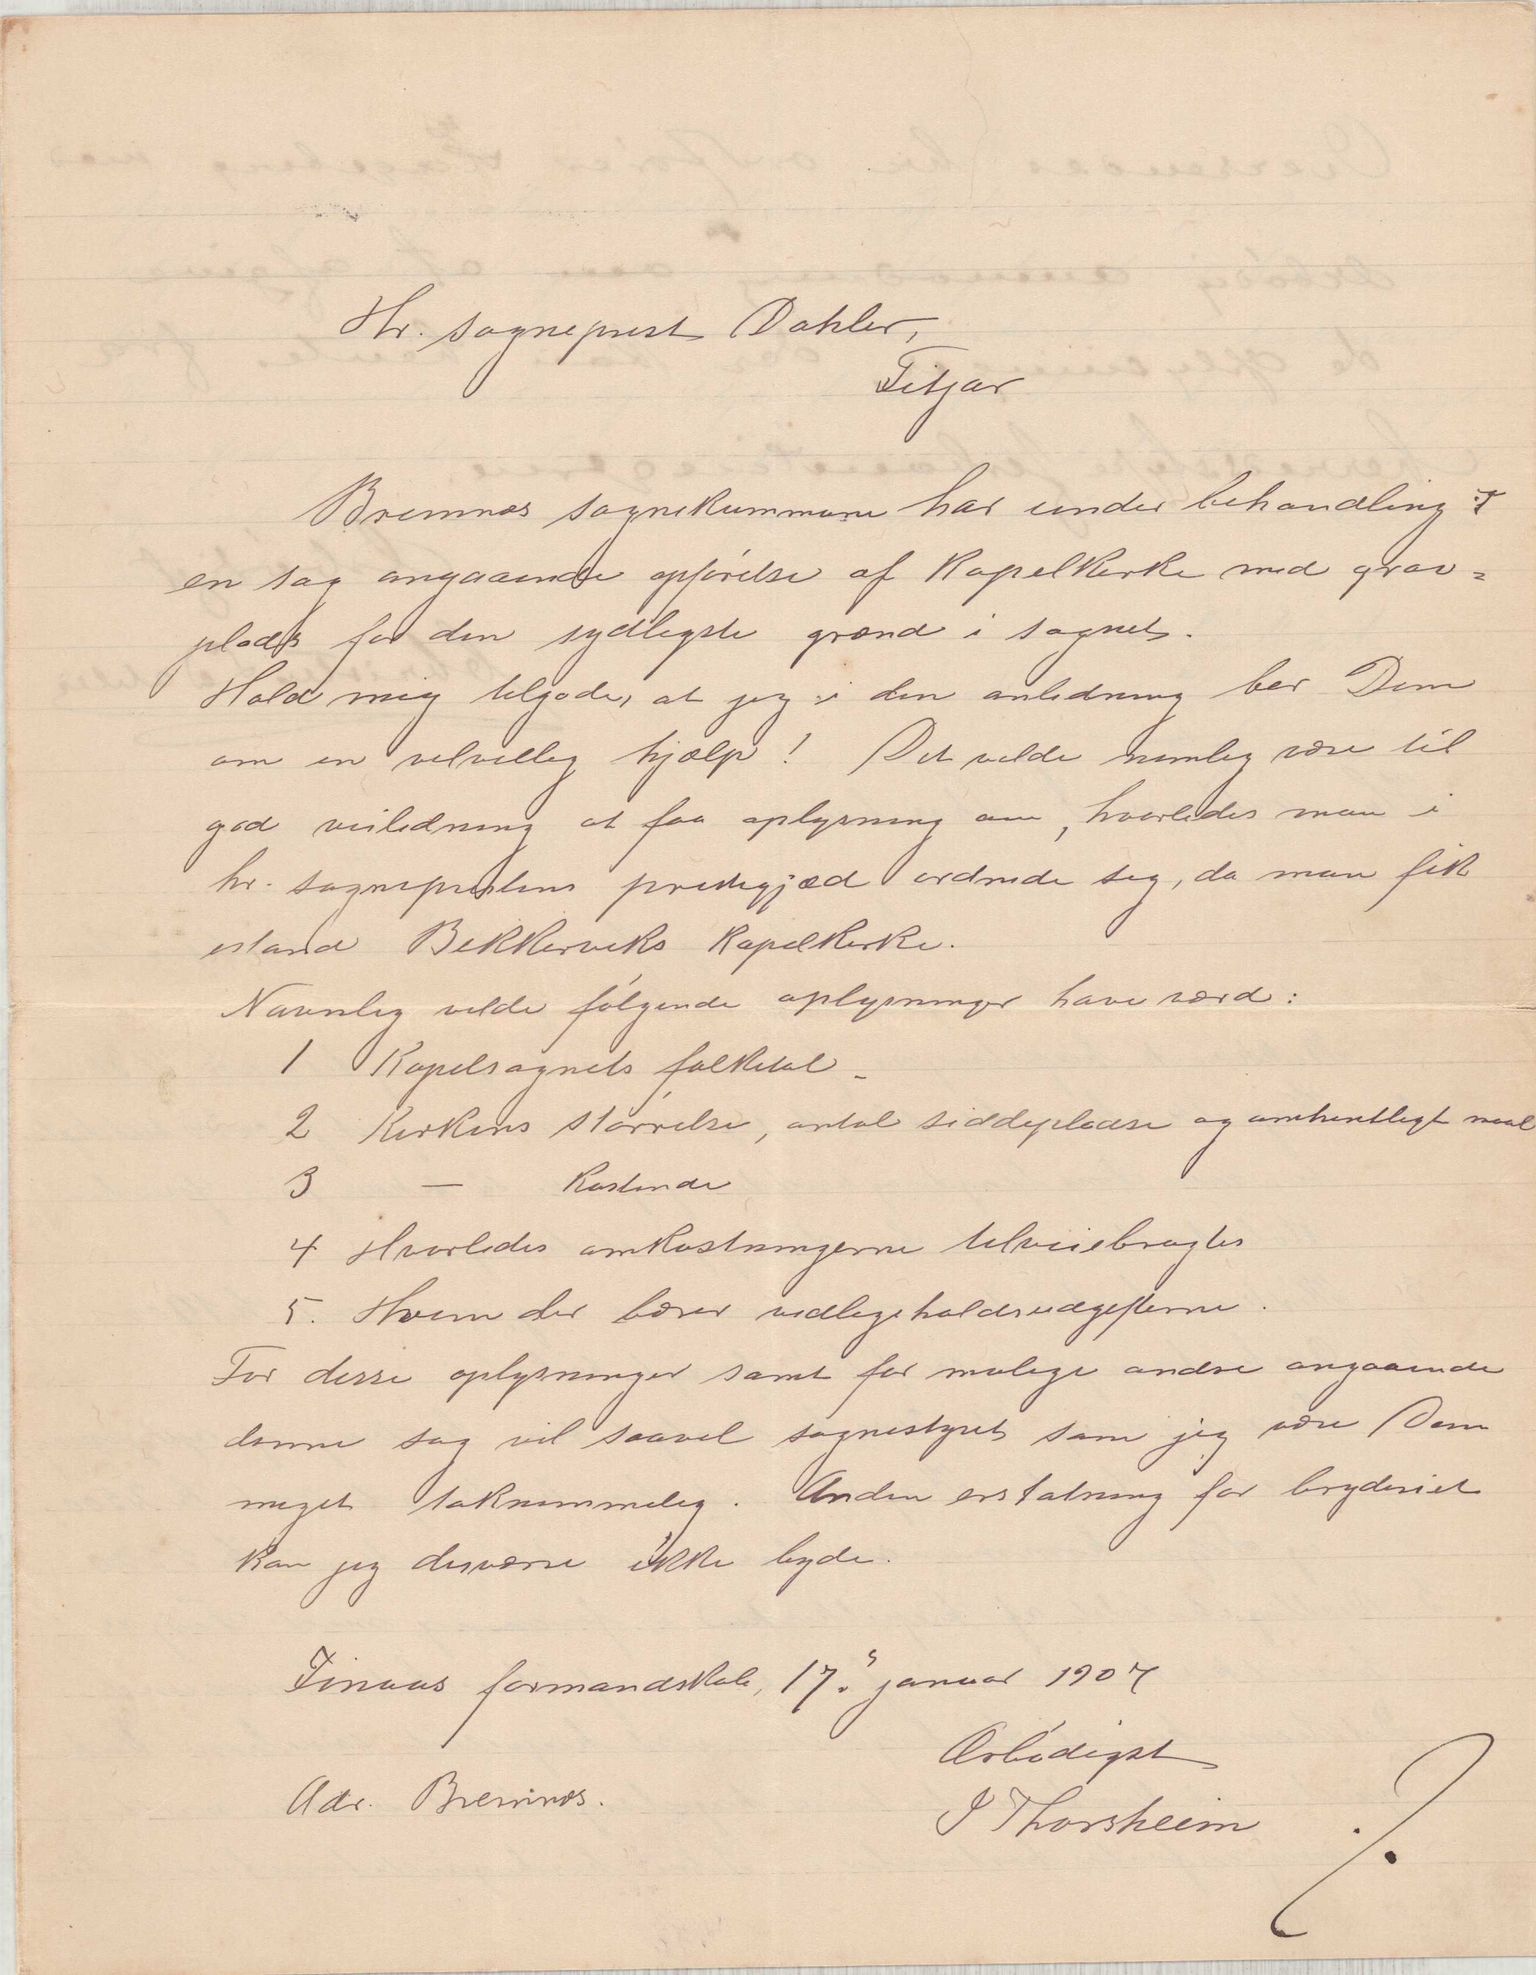 Hr. sogneprest Dahler,
Fitjar
Bremnes sognekommune har under behandling
en sag angaaende opførelse af kapelkirke med grav-
plads for den sydligste grænd i sognet.
Hold mig tilgode, at jeg i den anledning ber Dem
om en velvillig hjælp! Det vilde nemlig være til
god veiledning at faa oplysning om, hvorledes man i
hr. sogneprestens prestegjæld ordnede seg, da man fik
istand Bekkerviks kapelkirke.
Navnlig vilde følgende oplysninger have værd:
1 Kapelsognets folketal
2 Kirkens størrelse, antal siddepladse og omtrentligt maal
3 — kostende
4 Hvorledes omkostningerne tilveiebragtes
5. Hvem der bærer vedligeholdsudgifterne.
For disse oplysninger samt for mulige andre angaaende
denne sag vil saavel sognestyret som jeg være Dem
meget taknemmelig. Anden erstatning for bryderiet
kan jeg desværre ikke byde.
Finaas formandskab, 17. januar 1907
Ærbødigst
Adr. Bremnes.
J Thorsheim